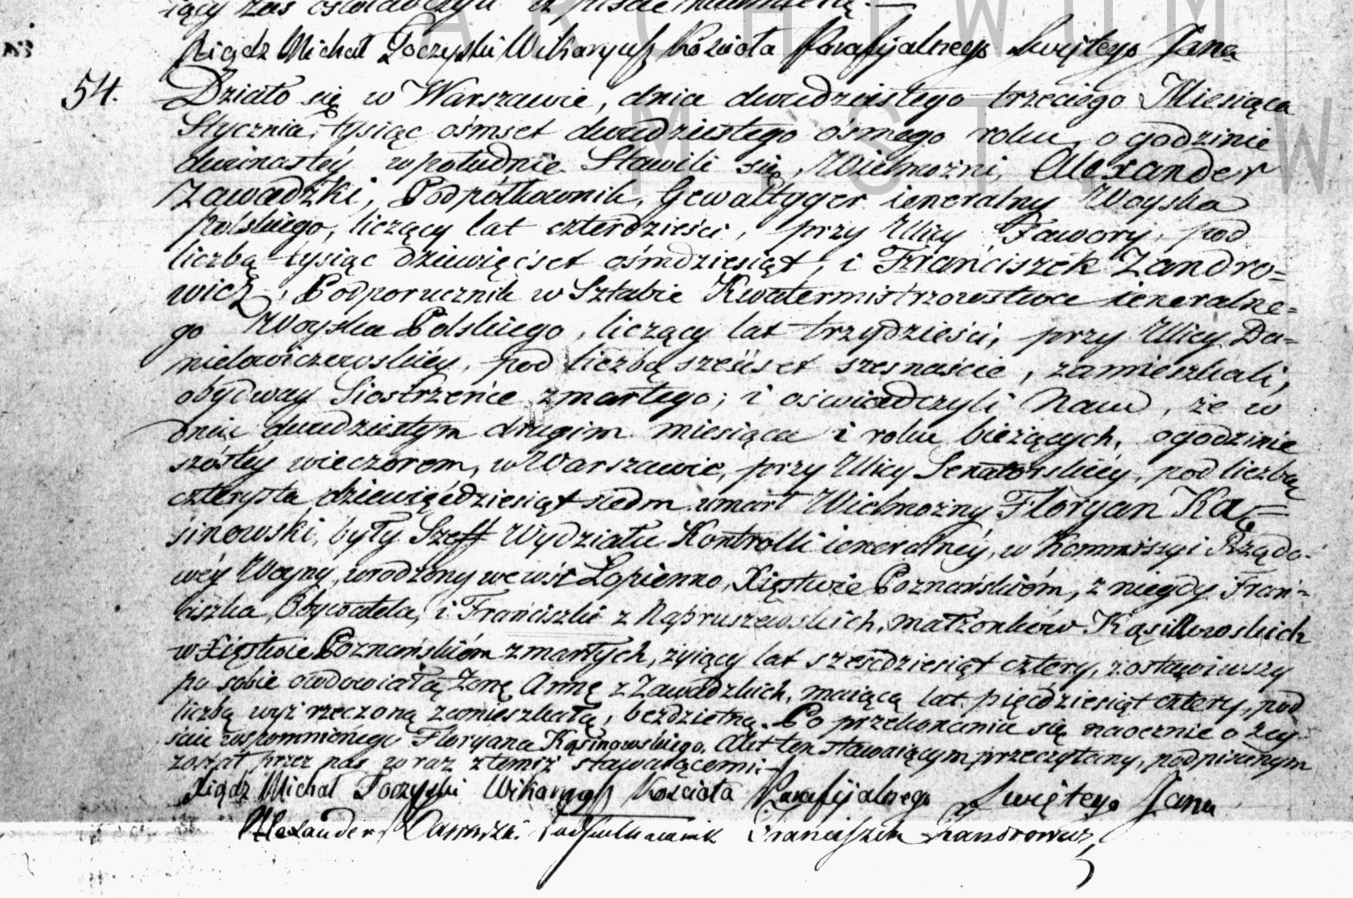 iący zaś oświadczył iż pisać nieumieią.—
Xiądz Michał Toczyski Wikaryusz Kościoła Parafijalnego Świętego Jana
54. Działo się w Warszawie, dnia dwudziestego trzeciego Miesiąca
Stycznia, tysiąc ośmset dwudziestego osmego roku, o godzinie
dwónastéy w południe. Stawili się, Wielmożni, Alexander
Zawadzki, Podpółkownik, Gewaltyger ieneralny Woyska
Polskiego, liczący lat czterdzieści, przy Ulicy Fawory, pod
liczbą tysiąc dziewięćset ośmdziesiąt, i Franciszek Zandro=
wicz, Podporucznik w Sztabie Kwatermistrzowstwa ieneralne=
go Woyska Polskiego, liczący lat trzydzieści, przy Ulicy Da=
nielowiczowskiéy, pod liczbą sześćset szesnaście, zamieszkali,
obydway Siostrzeńce zmarłego; i oświadczyli Nam, że w
dniu dwudziestym drugim miesiąca i roku bieżących, o godzinie
szóstey wieczorem, w Warszawie, przy Ulicy Senatorskiéy, pod liczbą
czterysta dziewięćdziesiąt siedm umarł Wielmożny Floryan Ką=
sinowski, były Szeff Wydziału Kontrolli ieneralnéy, w Kommissyi Rządo=
wéy Woyny, urodzony we wsi Łopienno, Xięstwie Poznańskiém, z niegdy Fran=
ciszka, Obywatela, i Franciszki z Napruszewskich, małżonków Kąsinowskich
w Xięstwie Poznańskiém zmarłych, żyiący lat sześćdziesiąt cztery, zostawiwszy
po sobie owdowiałą żonę Annę z Zawadzkich, maiącą lat pięćdziesiąt cztery, pod
liczbą wyż rzeczoną zamieszkałą, bezdzietną. Po przekonaniu się naocznie o zey=
ściu wspomnionego Floryana Kąsinowskiego. Akt ten stawaiącym przeczytany, podpisanym
został przez nas wraz z temiż stawaiącemi.—
Xiądz Michał Toczyski Wikaryusz Kościoła Parafijalnego Świętego Jana
Alexander Zawadzki Podpułkownik Franciszek Zandrowicz